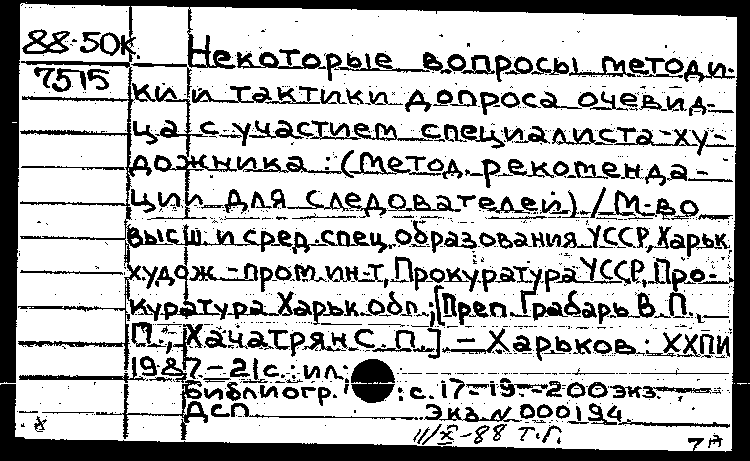 88-50К
7515
Некоторые вопросы методи-
ки и тактики допроса очевид-
ца с участием специалиста-ху-
дожника : (Метод. рекоменда-
ции для следователей) / М-во
высш. и сред. спец. образования УССР, Харьк
худож.-пром. ин-т, Прокуратура УССР, Про-
куратура Харьк. обл.; [Преп. Грабарь В. П.,
П., Хачатрян С. П.] – Харьков : ХХПИ
1987 – 21 с. : ил.
Библиогр. : с. 17-19. – 200 экз.
ДСП Экз. N 000194
III/X-88 Т.Г.